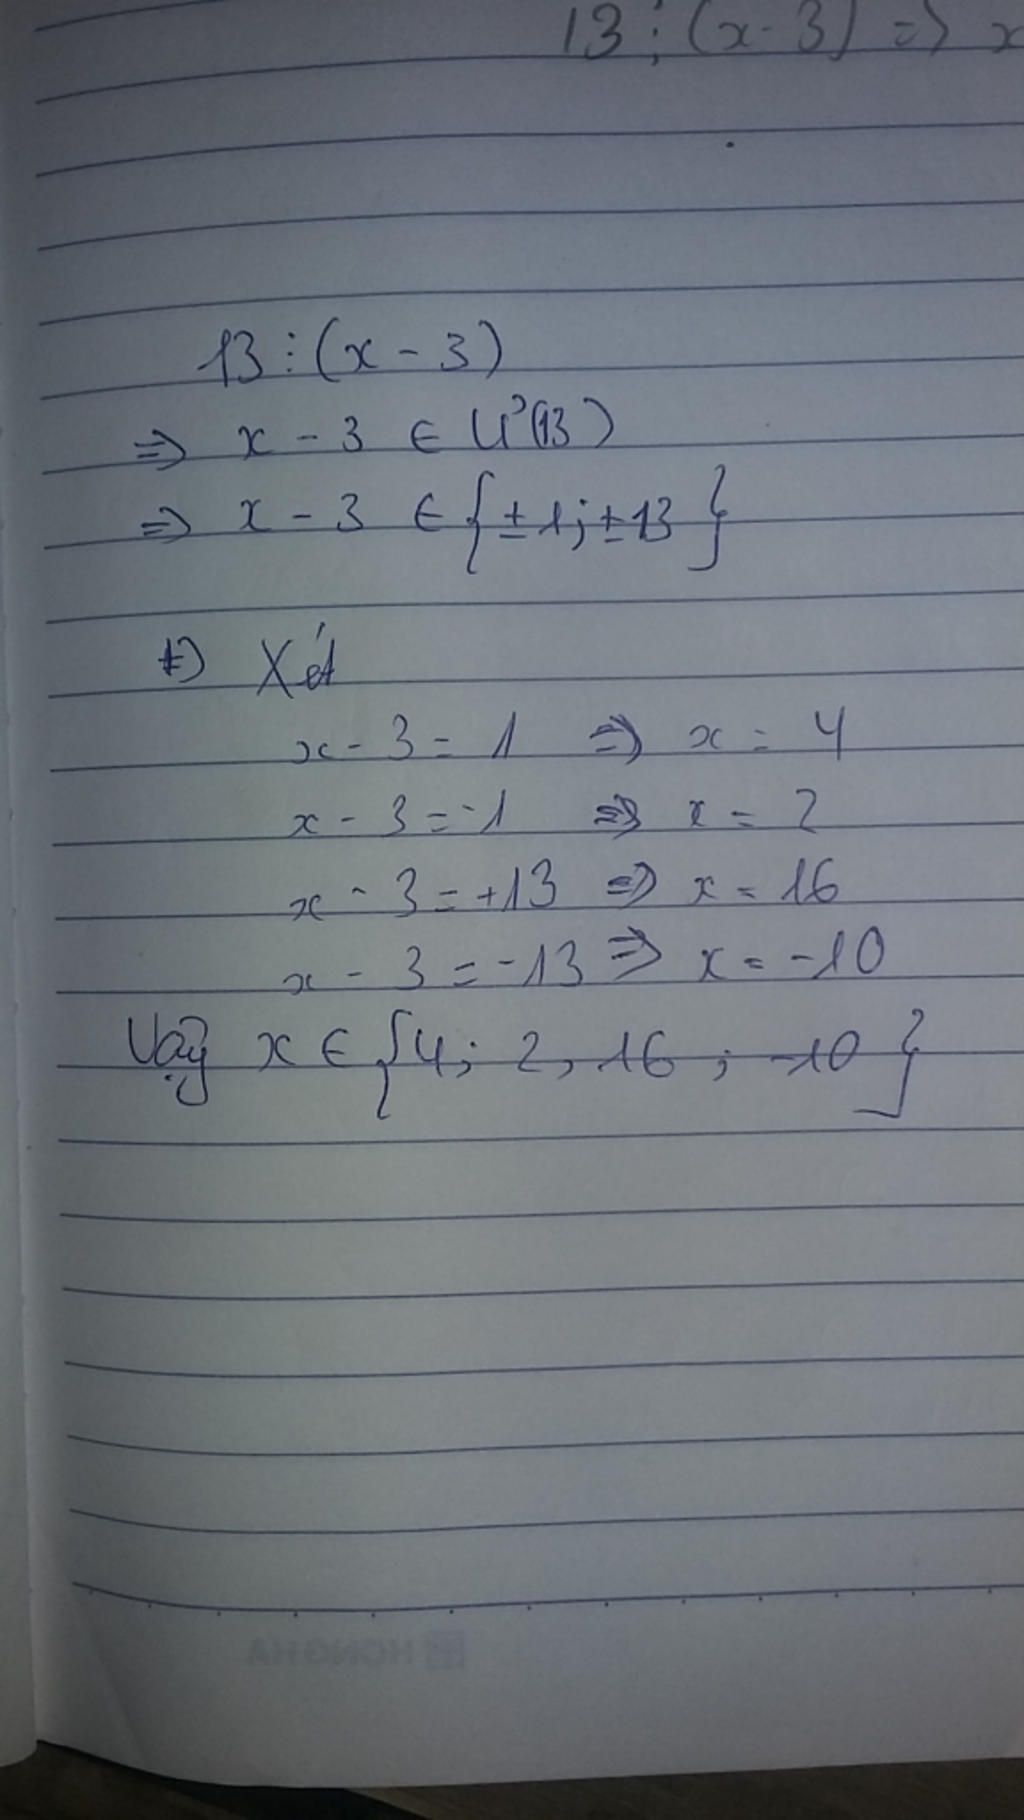 13 ⋮ (x - 3) => x
13 ⋮ (x - 3)
=> x - 3 ∈ Ư(13)
=> x - 3 ∈ {±1; ±13}
+) Xét
x - 3 = 1 => x = 4
x - 3 = -1 => x = 2
x - 3 = +13 => x = 16
x - 3 = -13 => x = -10
Vậy x ∈ {4; 2, 16 ; -10}
HONGHA